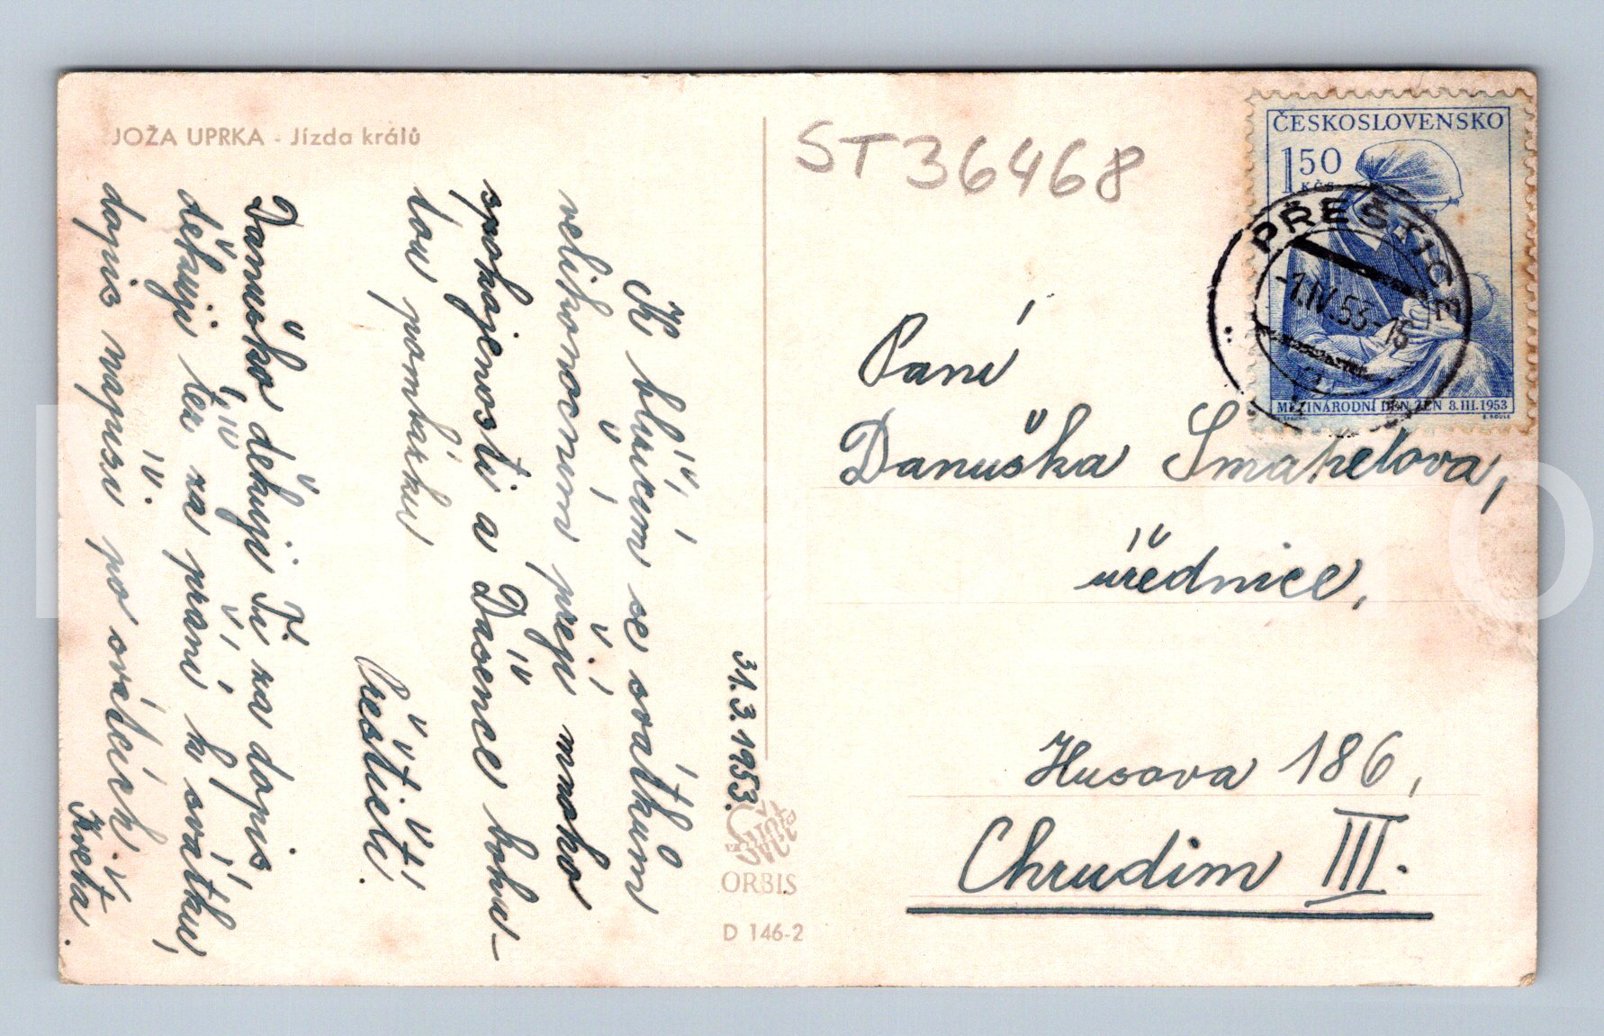 JOŽA UPRKA - Jízda králů
ST36468
ČESKOSLOVENSKO
1,50
KČS
MEZINÁRODNÍ DEN ŽEN 8.III.1953
PŘEŠTICE
-1.IV.53-15
Paní
Danuška Smahelova,
úřednice,
Husova 186,
Chrudim III.
31.3.1953.
K bližícím se svátkům
velikonočním přeji mnoho
spokojenosti a Dášence bohu-
lou pomlázku
Přeštičtí.
Danuško, děkuji Ti za dopis,
děkuji též za přání k svátku,
dopis napíši po svátcích.
Květa.
ORBIS
D 146-2